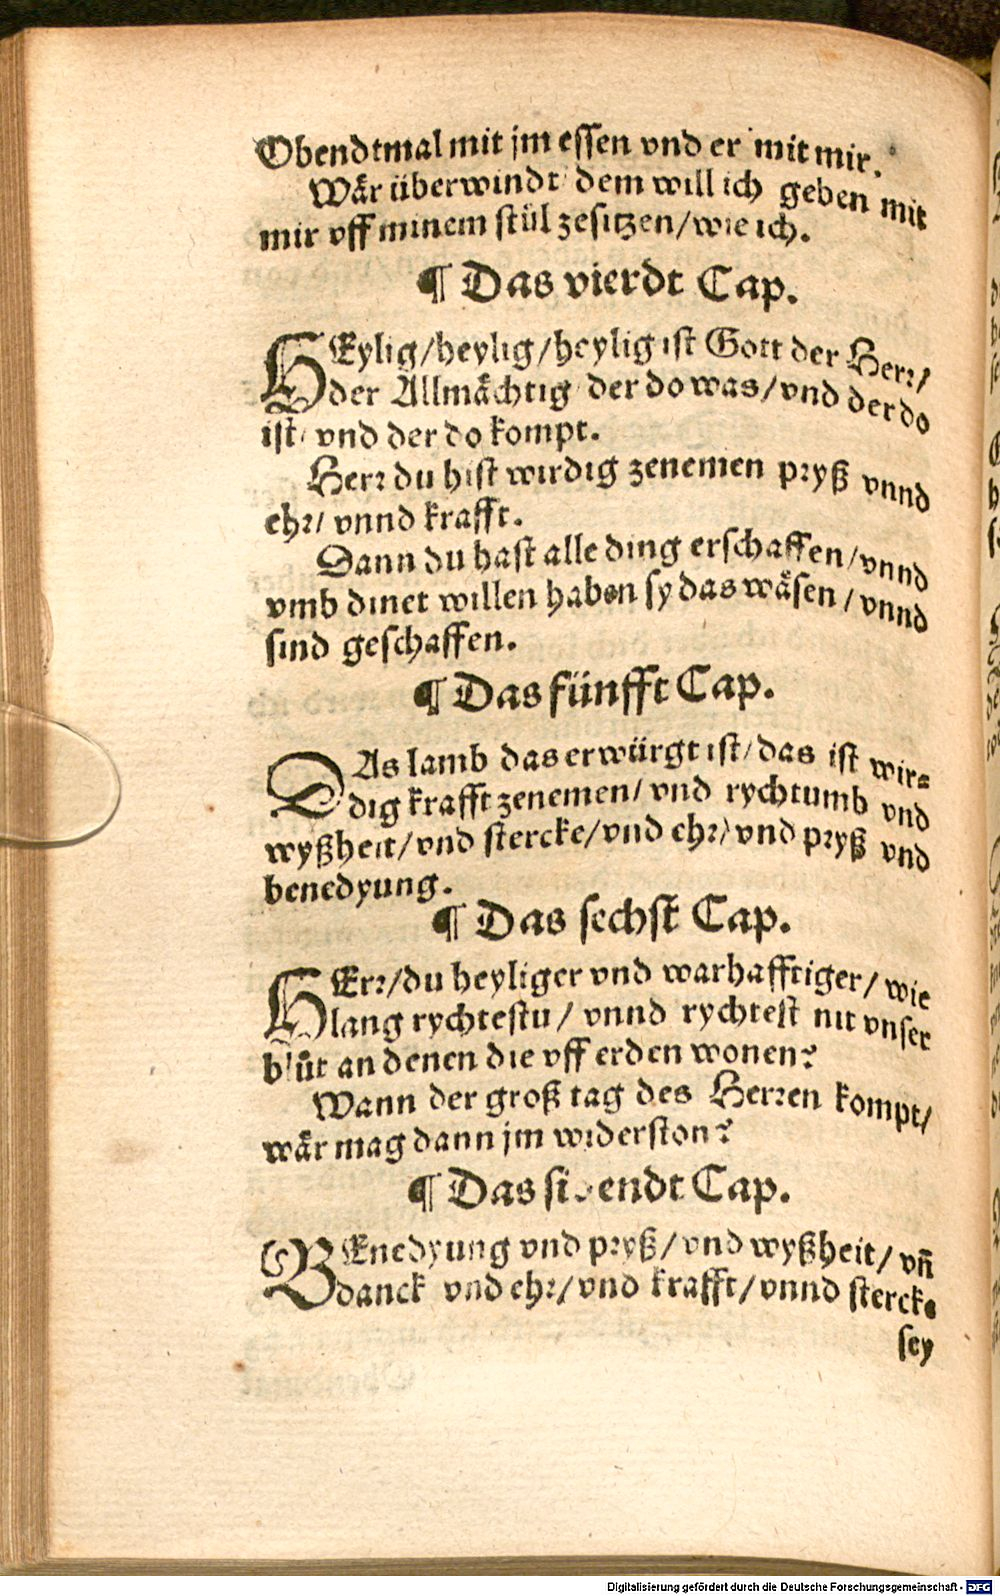 Obendtmal mit jm essen vnd er mit mir.
Wår überwindt dem will ich geben mit
mir vff minem stůl zesitzen/wie ich.
¶ Das vierdt Cap.
HEylig/heylig/heylig ist Gott der Herr/
der Allmåchtig der do was/vnd der do
ist/ vnd der do kompt.
Herr du bist wirdig zenemen pryß vnnd
ehr/ vnnd krafft.
Dann du hast alle ding erschaffen/vnnd
vmb dinet willen haben sy das wåsen/vnnd
sind geschaffen.
¶ Das fünfft Cap.
DAs lamb das erwürgt ist/das ist wir-
dig krafft zenemen/ vnd rychtumb vnd
wyßheit/vnd stercke/vnd ehr/vnd pryß vnd
benedyung.
¶ Das sechst Cap.
HErr/du heyliger vnd warhafftiger/wie
lang rychtestu/ vnnd rychtest nit vnser
blůt an denen die vff erden wonen?
Wann der groß tag des Herren kompt/
wår mag dann jm widerston?
¶ Das sibendt Cap.
BEnedyung vnd pryß/vnd wyßheit/vñ
danck vnd ehr/vnd krafft/vnnd stercke
sey
Digitalisierung gefördert durch die Deutsche Forschungsgemeinschaft - DFG